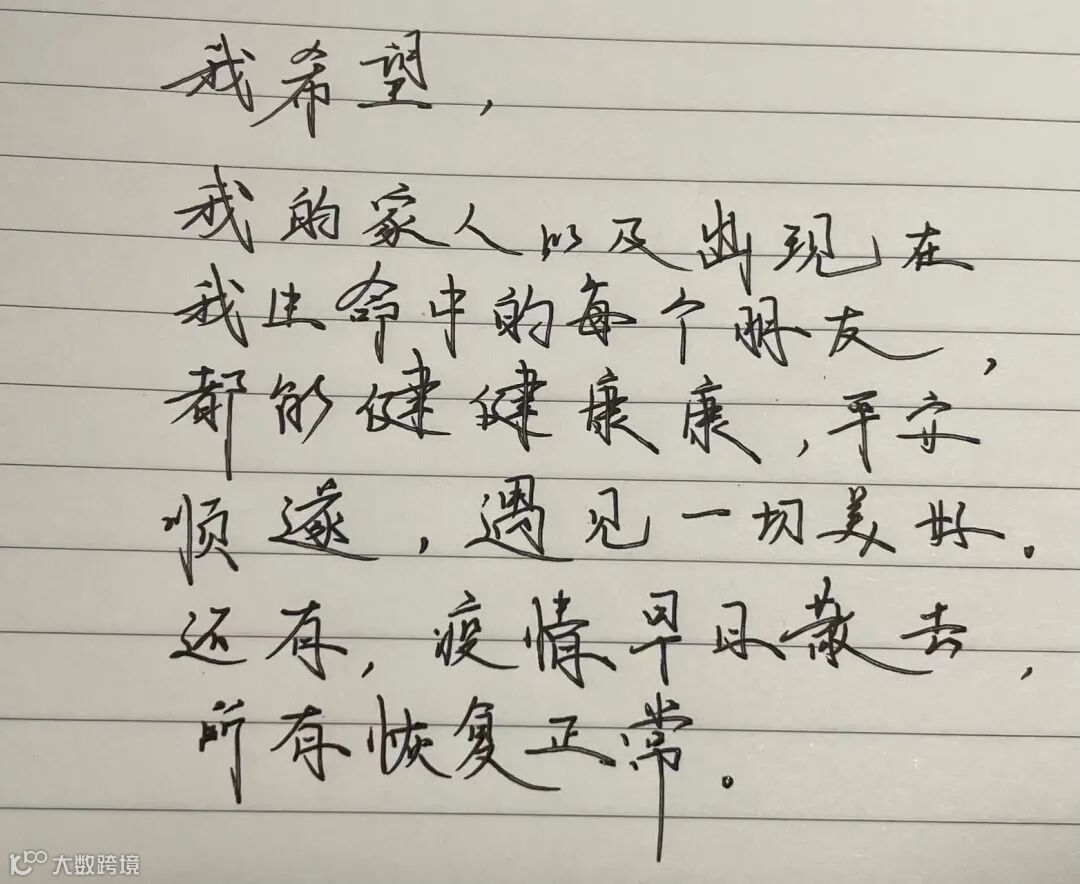 我希望,
我的家人以及出现在
我生命中的每个朋友,
都能健健康康,平安
顺遂,遇见一切美好.
还有,疫情早日散去,
所有恢复正常.
大数跨境